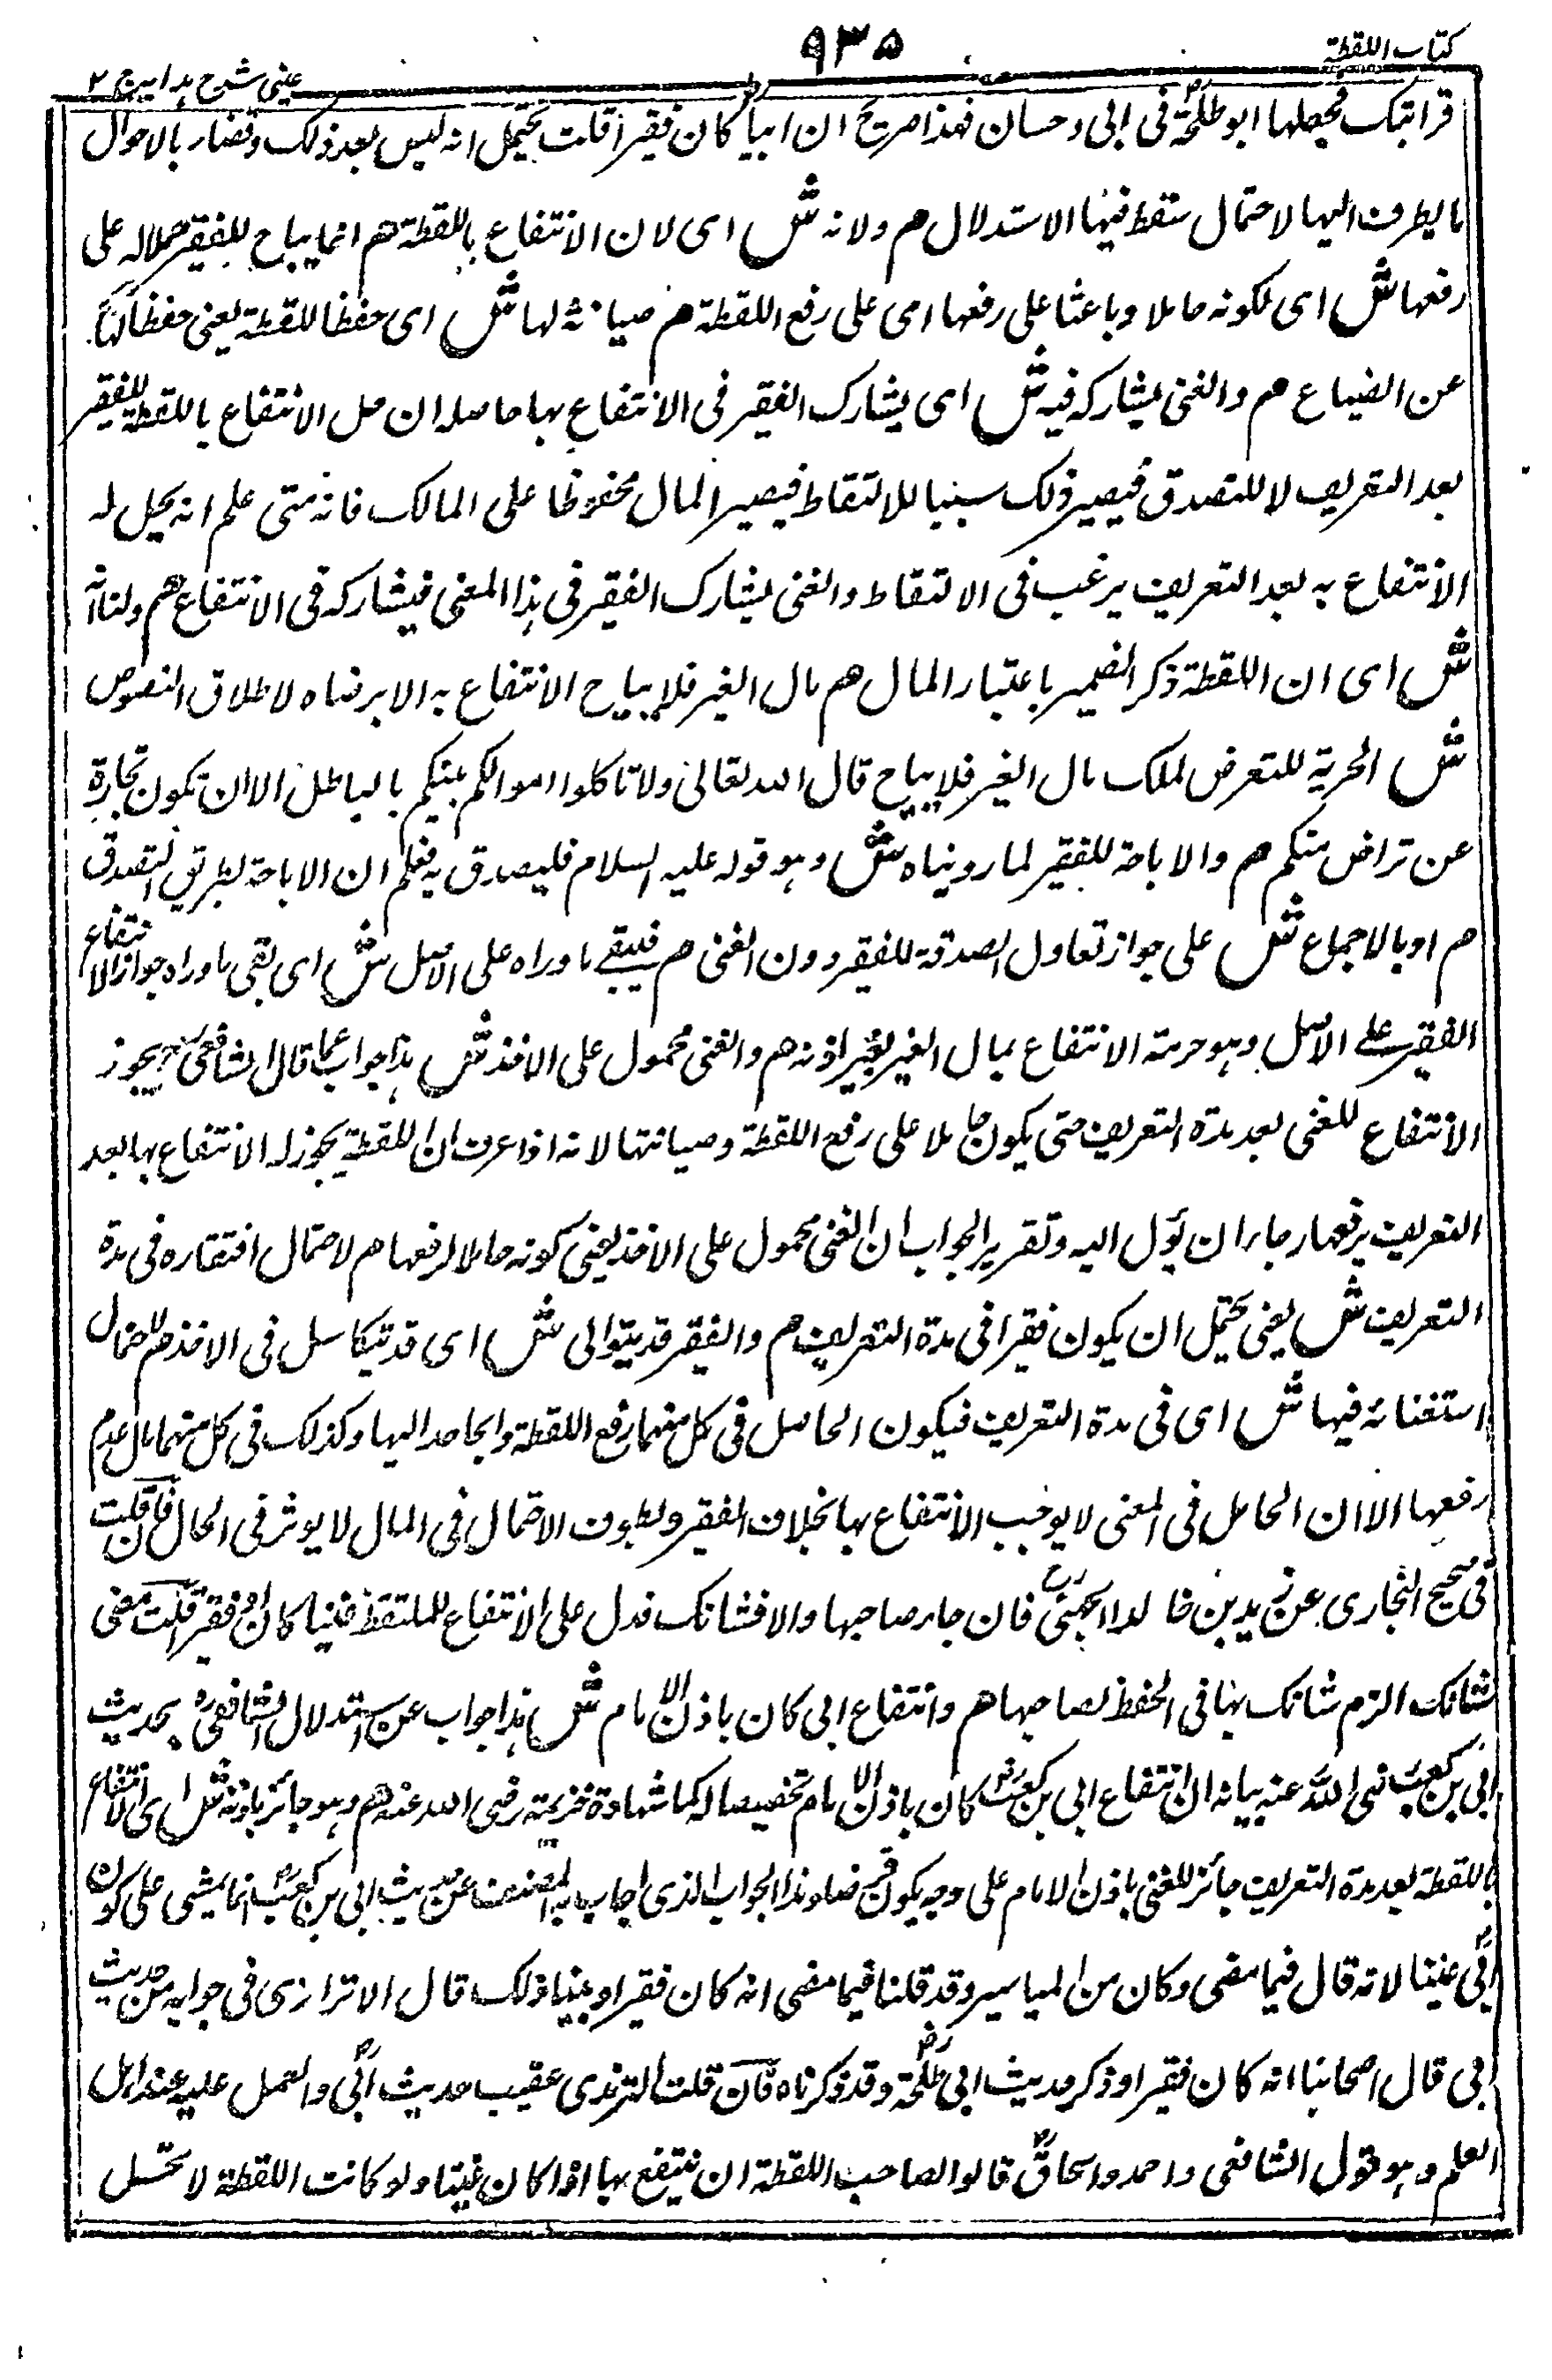 كتاب اللقطة
٩٣٥
عيني شرح هدايه ج ٢
قرابتك فجعلها ابو طلحة في ابي وحسان فهذا صرح ان ابيا كان فقيرا قلت يحتمل انه ليس بعد ذلك وقضايا الاحوال
ما يطرق اليها لاحتمال سقط فيها الاستدلال هم ولانه ش اى لان الانتفاع باللقطة هم انما يباح للفقير حملا له على
رفعها ش اى لكونه حاملا وباعثا على رفعها اى على رفع اللقطة هم صيانة لها ش اى حفظا للقطة يعني حفظا لها
عن الضياع هم والغني يشاركه فيه ش اى يشارك الفقير في الانتفاع بها حاصله ان حل الانتفاع باللقطة للفقير
بعد التعريف لا للتصدق فيصير ذلك سببا للالتقاط فيصير المال محفوظا على المالك فانه متى علم انه يحل له
الانتفاع به بعد التعريف يرغب في الالتقاط والغني يشارك الفقير في هذا المعنى فيشاركه في الانتفاع هم ولنا انه
ش اى ان اللقطة ذكر الضمير باعتبار المال هم مال الغير فلا يباح الانتفاع به الا برضاه لاطلاق النصوص
ش الحرية للتعرض لملك مال الغير فلا يباح قال الله تعالى ولا تاكلوا اموالكم بينكم بالباطل الا ان تكون تجارة
عن تراض منكم هم والاباحة للفقير لما رويناه ش وهو قوله عليه السلام فليصدق به فعلم ان الاباحة بطريق التصدق
هم او بالاجماع ش على جواز تعاول الصدقة للفقير دون الغني هم فيبقى ما وراه على الاصل ش اى بقي ما وراه جواز الانتفاع
الفقير على الاصل وهو حرمة الانتفاع بمال الغير بغير اذنه هم والغني محمول على الاخذ ش هذا جواب عما قال الشافعي يجوز
الانتفاع للغني بعد مدة التعريف حتى يكون حاملا على رفع اللقطة وصيانتها لانه اذا عرف ان اللقطة يجوز له الانتفاع بها بعد
التعريف يرفعها رجاء ان يؤل اليه وتقرير الجواب ان الغني محمول على الاخذ يعني كونه حاملا لرفعها هم لاحتمال افتقاره في مدة
التعريف ش يعني يحتمل ان يكون فقيرا في مدة التعريف هم والفقير قد يتوانى ش اى قد يتكاسل في الاخذ هم لاحتمال
استغنائه فيها ش اى في مدة التعريف فيكون الحاصل في كل منهما رفع اللقطة وايجاحد اليها وكذلك في كل منهما مال عدم
رفعها الا ان الحامل في المعنى لا يوجب الانتفاع بها بخلاف الفقير ولطوف الاحتمال في المال لا يوثر في الحال فان قلت
في صحيح البخاري عن زيد بن خالد الجهني رح فان جاء صاحبها والا فشانك فدل على الانتفاع للملتقط غنيا كان او فقيرا قلت معنى
شانك الزم شانك بها في الحفظ لصاحبها هم وانتفاع ابي كان باذن الامام ش هذا جواب عن استدلال الشافعي رح بحديث
ابي بن كعب رضي الله عنه بيانه ان انتفاع ابي بن كعب رض كان باذن الامام تخصيصا له كما شهادة خزيمة رضى الله عنه هم وهو جائز باذنه ش اى الانتفاع
باللقطة بعد مدة التعريف جائز للغني باذن الامام على وجه يكون قرضا وهذا الجواب الذى اجاب به المصنف عن حديث ابي بن كعب رض انما يمشي على كون
ابي غنيا لانه قال فيما مضى وكان من المياسير وقد قلنا فيما مضى انه كان فقيرا وبينا ذلك قال الاترازى في جوابه عن حديث
ابي قال اصحابنا انه كان فقيرا وذكر حديث ابي طلحة رض وقد ذكرناه فان قلت الترمذى عقيب حديث ابي والعمل عليه عند اهل
العلم وهو قول الشافعى واحمد واسحاق قالوا لصاحب اللقطة ان ينتفع بها اذا كان غنيا ولو كانت اللقطة لا تحل